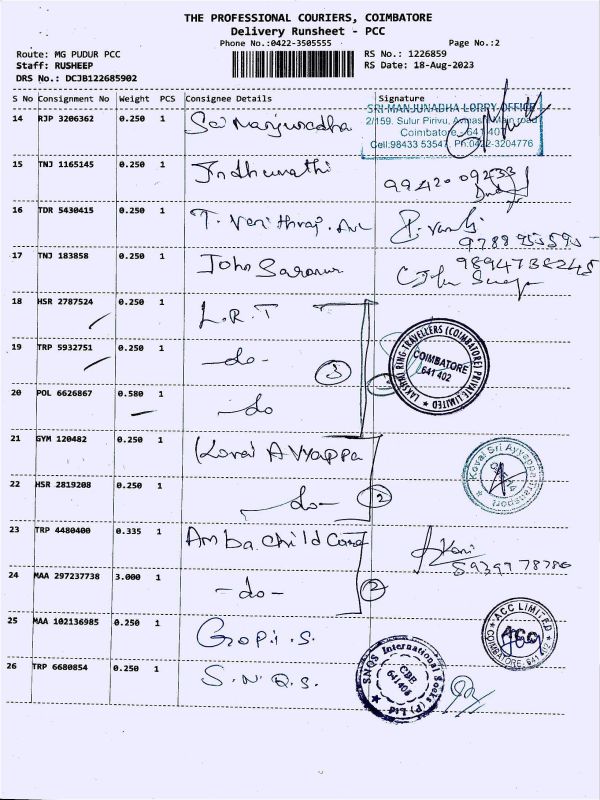 THE PROFESSIONAL COURIERS, COIMBATORE
Delivery Runsheet - PCC
Phone No.:0422-3505555 Page No.:2
Route: MG PUDUR PCC RS No.: 1226859
Staff: RUSHEEP RS Date: 18-Aug-2023
DRS No.: DCJB122685902
S No Consignment No Weight PCS Consignee Details Signature
14 RJP 3206362 0.250 1 Sai Manjunadha
SRI MANJUNADHA LORRY OFFICE
2/159, Sulur Pirivu, Avinashi Main road
Coimbatore - 641 407
Cell:98433 53547, Ph:0422-3204776
15 TNJ 1165145 0.250 1 Indhumathi 99420 09233
16 TDR 5430415 0.250 1 T.
17 TNJ 183858 0.250 1 John 9894738245
18 HSR 2787524 0.250 1 L.R.T
19 TRP 5932751 0.250 1 -do- 3
LAKSHMI RING TRAVELLERS (COIMBATORE) PRIVATE LIMITED
COIMBATORE
641 402
20 POL 6626867 0.580 1 -do
21 GYM 120482 0.250 1 Kovai Ayyappa
Kovai Sri Ayyappan Transport
22 HSR 2819208 0.250 1 -do- 2
23 TRP 4480400 0.335 1 Amba Child Care
24 MAA 297237738 3.000 1 -do- 2
25 MAA 102136985 0.250 1 Gopi.S.
ACC LIMITED
ACC
COIMBATORE, 641
26 TRP 6680854 0.250 1 S.N.Q.S.
SNQS International Socks (P) Ltd
CBE
641 406